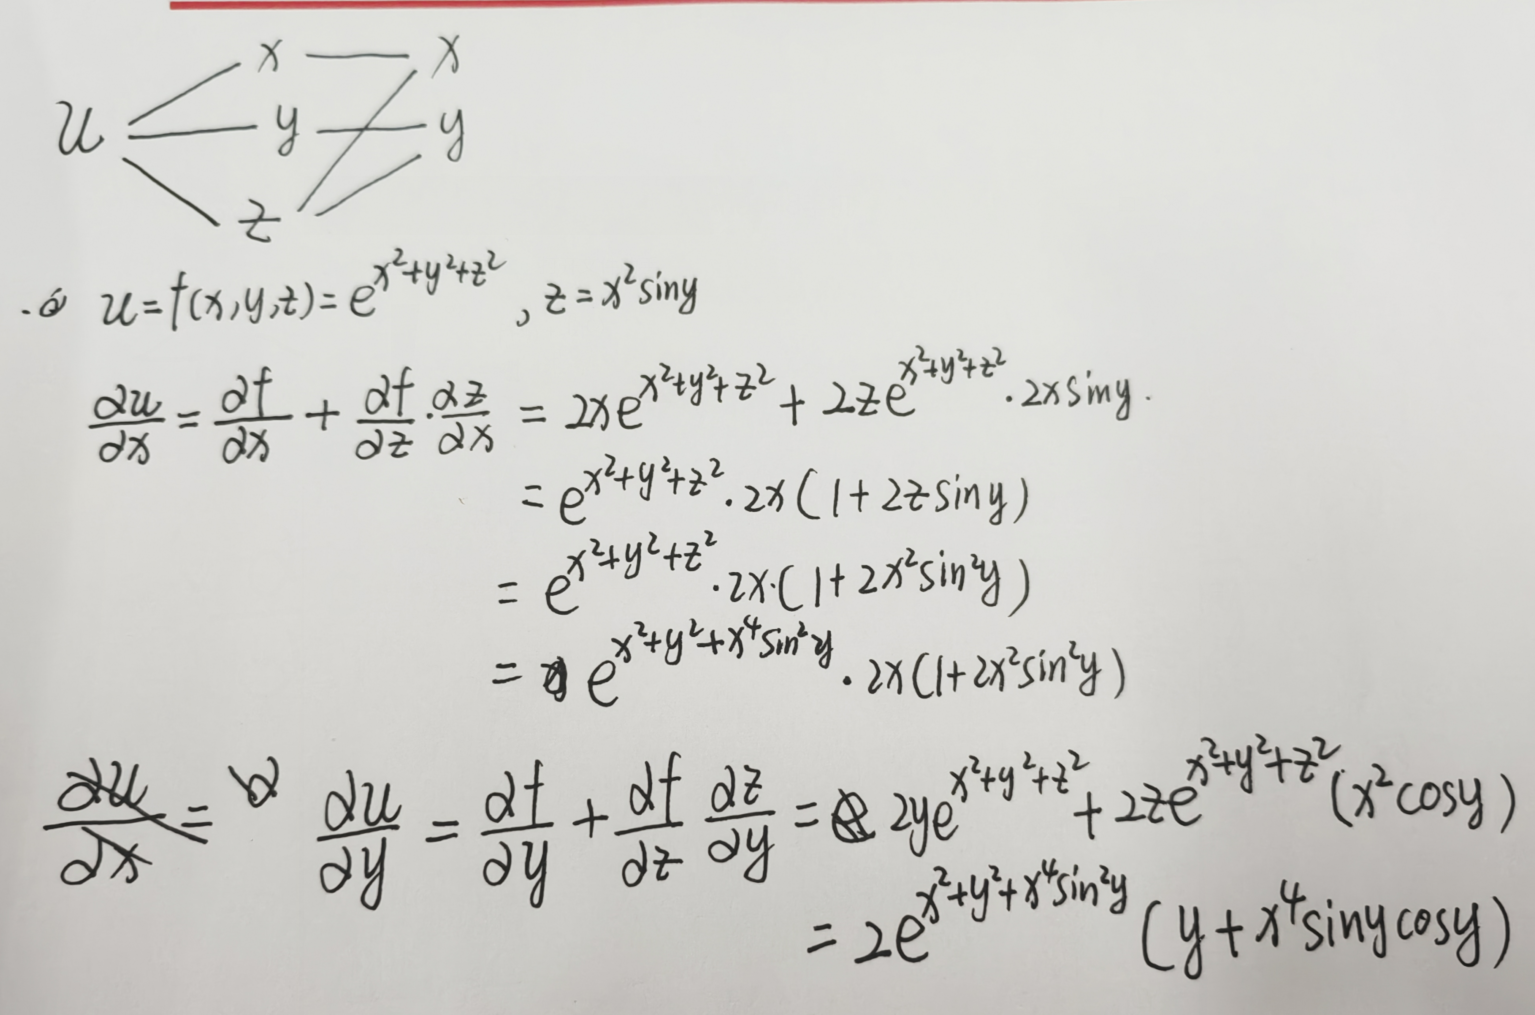 x x
u y y
z
u=f(x,y,z)=e^{x²+y²+z²}, z=x²siny
∂u/∂x = ∂f/∂x + ∂f/∂z · ∂z/∂x = 2xe^{x²+y²+z²} + 2ze^{x²+y²+z²} · 2xsiny.
= e^{x²+y²+z²} · 2x(1+2zsiny)
= e^{x²+y²+z²} · 2x·(1+2x²sin²y)
= e^{x²+y²+x⁴sin²y} · 2x(1+2x²sin²y)
∂u/∂x = ∂ ∂u/∂y = ∂f/∂y + ∂f/∂z ∂z/∂y = 2ye^{x²+y²+z²} + 2ze^{x²+y²+z²}(x²cosy)
= 2e^{x²+y²+x⁴sin²y}(y+x⁴sinycosy)